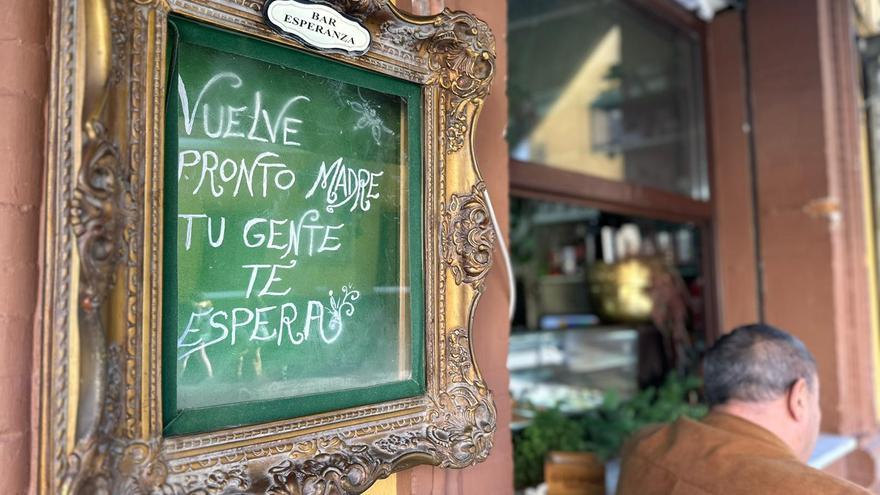 BAR
ESPERANZA
VUELVE
PRONTO MADRE
TU GENTE
TE
ESPERA